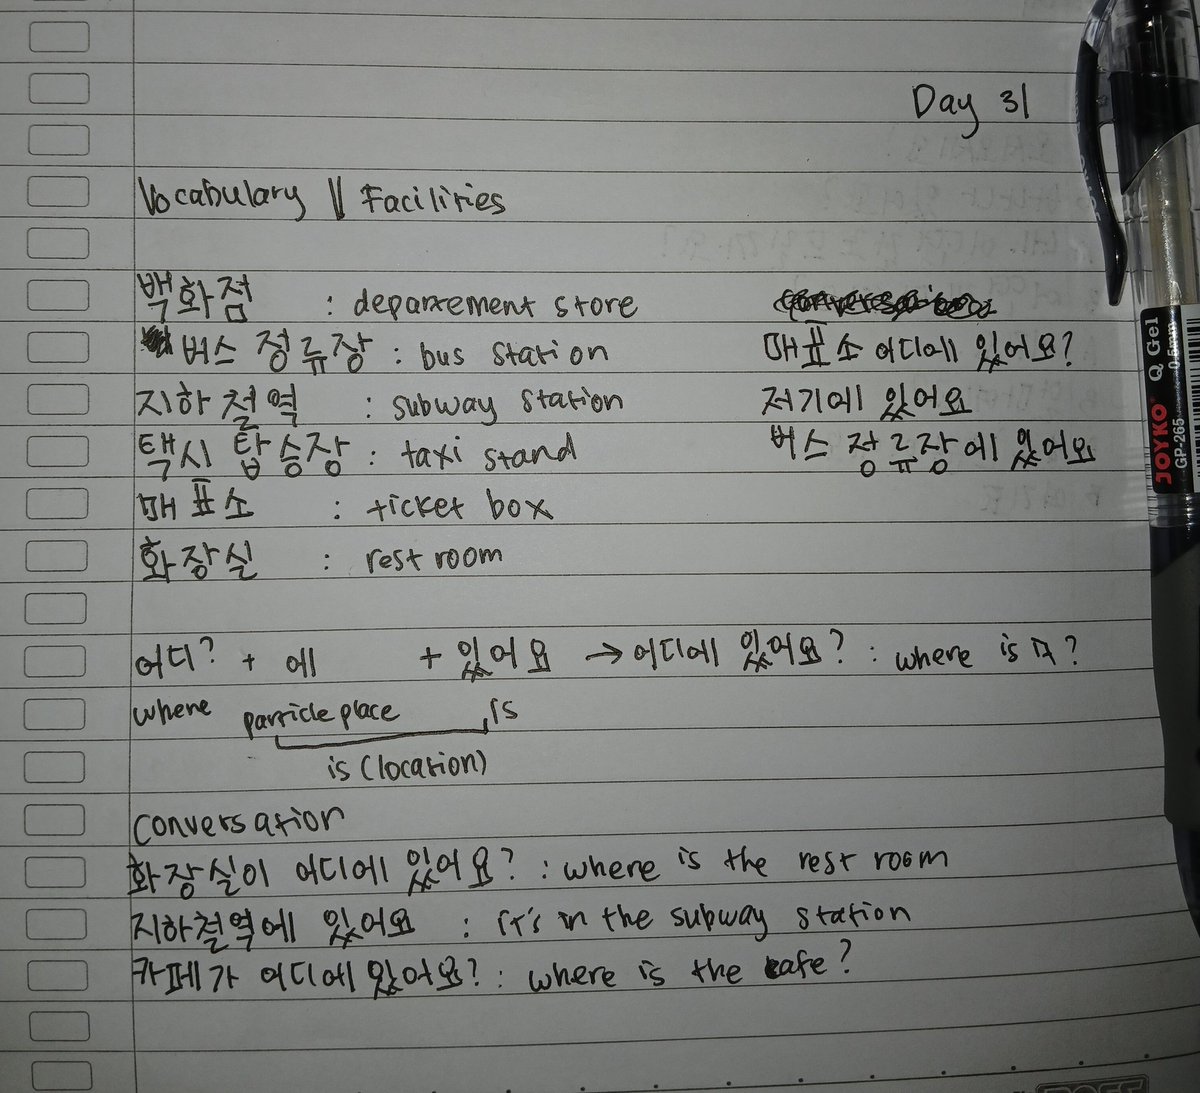 Day 31
Vocabulary || Facilities
백화점 : departement store
버스 정류장 : bus station
지하철역 : subway station
택시 탑승장 : taxi stand
매표소 : ticket box
화장실 : rest room
매표소 어디에 있어요?
저기에 있어요
버스 정류장에 있어요
어디? + 에 + 있어요 → 어디에 있어요? : where is it?
where particle place is
is (location)
conversation
화장실이 어디에 있어요? : where is the rest room
지하철역에 있어요 : it's in the subway station
카페가 어디에 있어요? : where is the cafe?
JOYKO Q Gel
GP-265 0.5mm